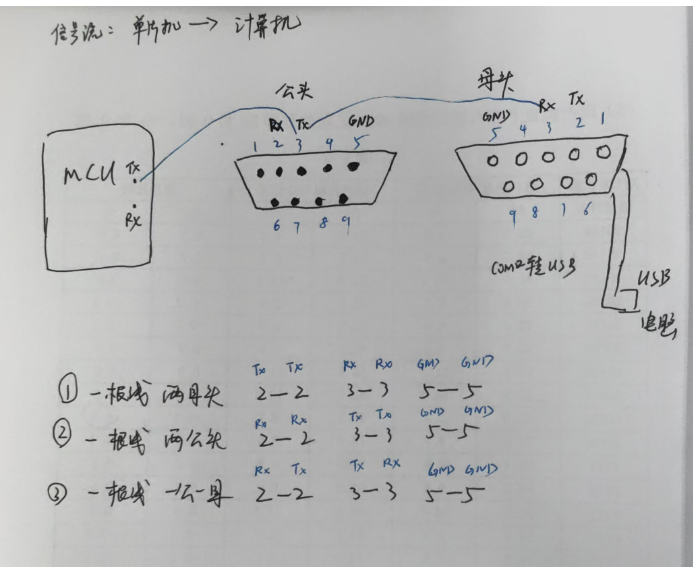 信号流: 单片机 → 计算机
公头
母头
Rx Tx GND
1 2 3 4 5
GND Rx Tx
5 4 3 2 1
MCU Tx
Rx
6 7 8 9
9 8 7 6
COM口转USB
USB
电脑
Tx Tx Rx Rx GND GND
① 一根线 两母头 2-2 3-3 5-5
Rx Rx Tx Tx GND GND
② 一根线 两公头 2-2 3-3 5-5
Rx Tx Tx Rx GND GND
③ 一根线 一公一母 2-2 3-3 5-5